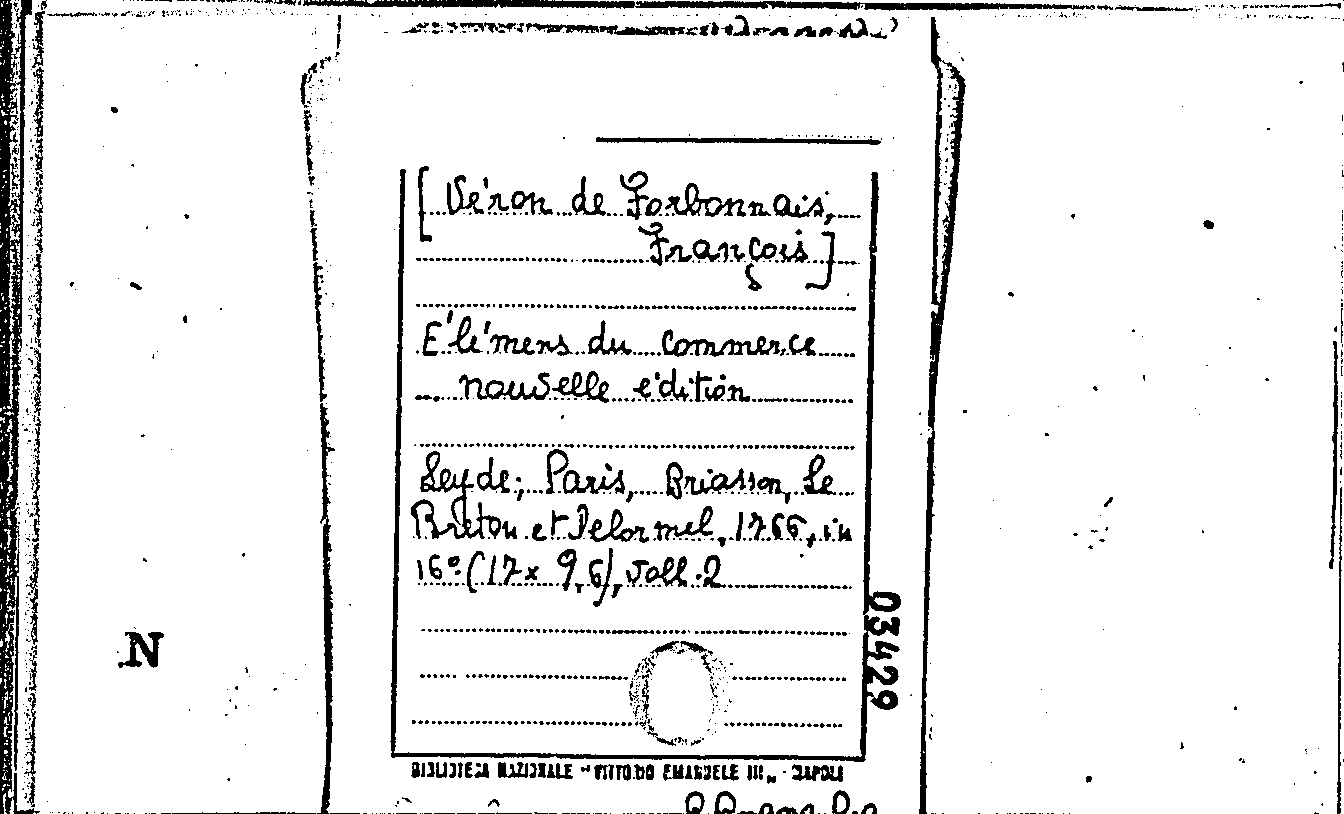 [ Véron de Forbonnais,
François ]
Élémens du commerce
... nouvelle édition
Leyde; Paris, Briasson, Le
Breton et Delormel, 1766, in
16° (17 x 9,6), voll. 2
03429
N
BIBLIOTECA NAZIONALE "VITTORIO EMANUELE III" - NAPOLI